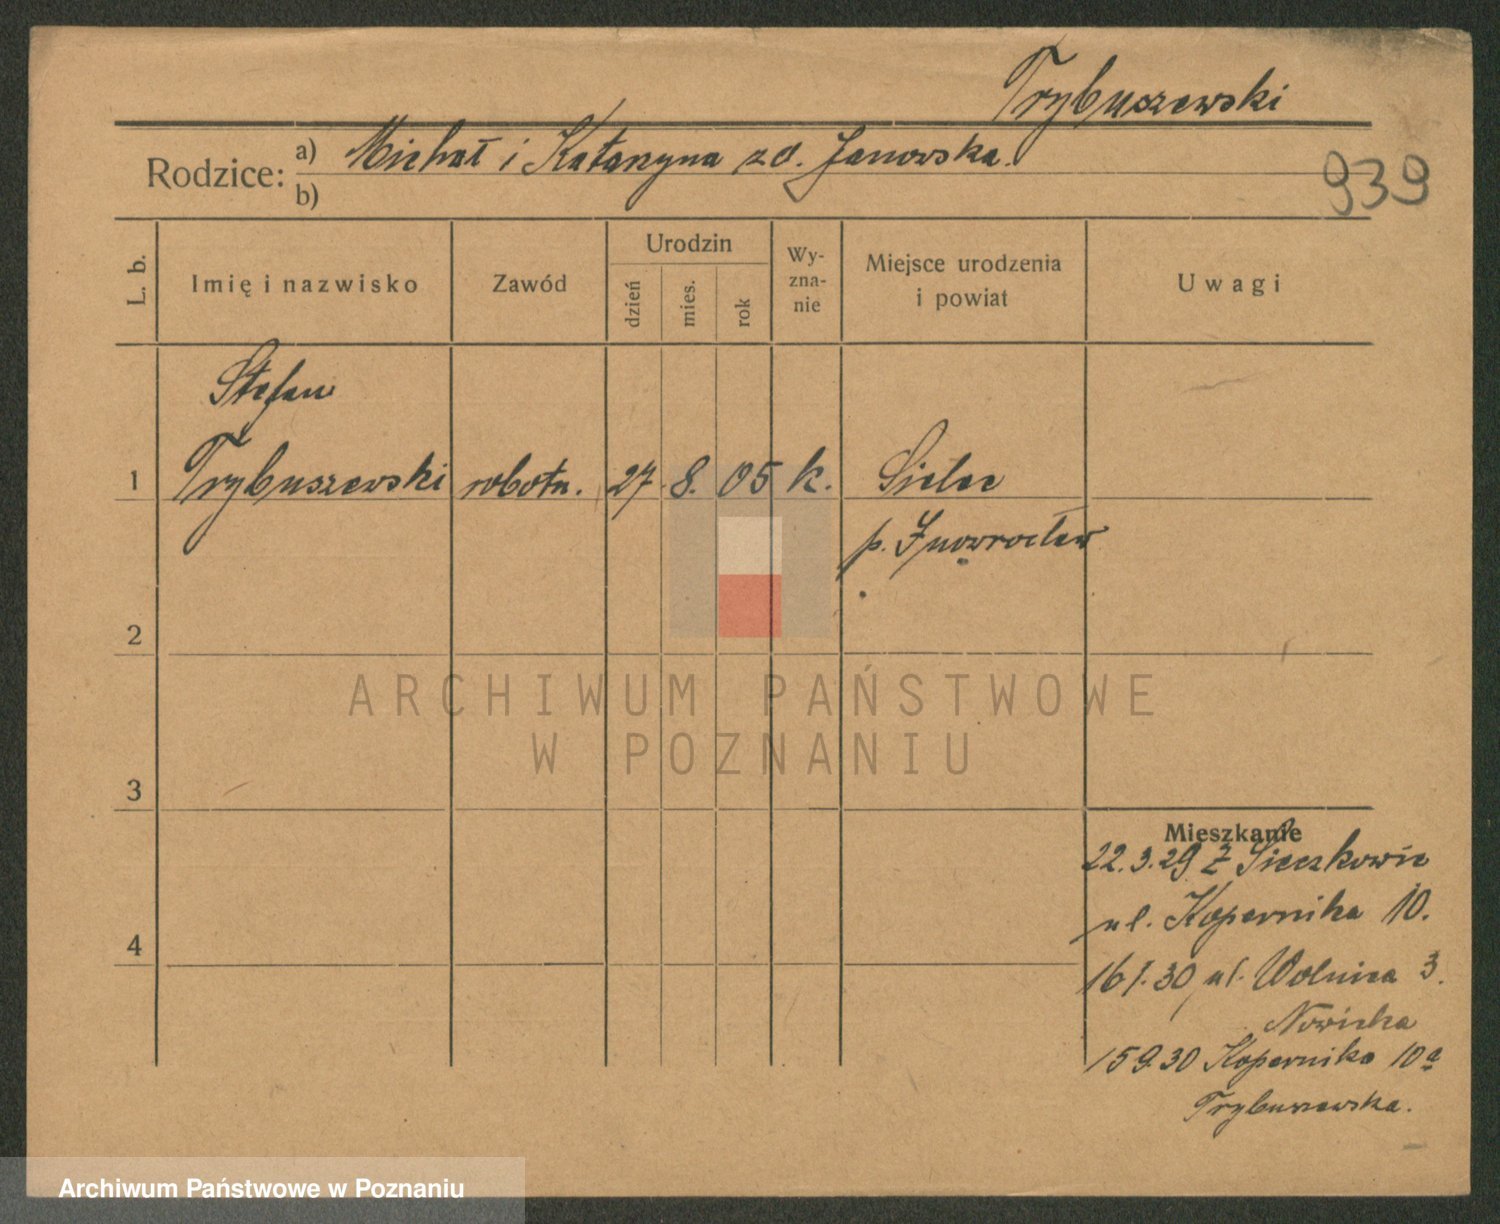 Trybuszewski
Rodzice: a) Michał i Katarzyna zd. Janowska.
b)
939
L. b.
Imię i nazwisko
Zawód
Urodzin
dzień
mies.
rok
Wy-
zna-
nie
Miejsce urodzenia
i powiat
Uwagi
Stefan
1 Trybuszewski robotn. 27. 8. 05 k. Sielec
p. Inowrocław
2
3
4
Mieszkanie
22.3.29 z Sieczkowic
ul. Kopernika 10.
16 I. 30 ul. Wolnica 3.
Nowicka
15 9.30 Kopernika 10a
Trybuszewska.
ARCHIWUM PAŃSTWOWE
W POZNANIU
Archiwum Państwowe w Poznaniu